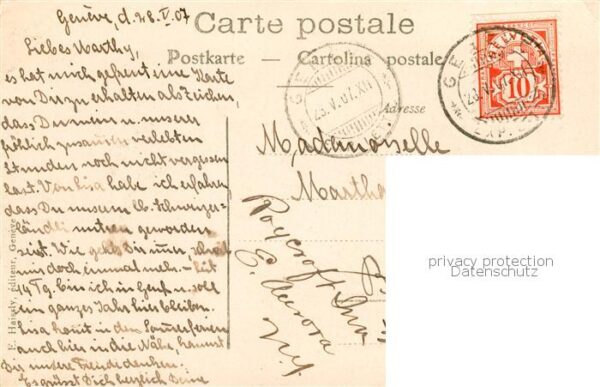 Genève, d. 28.V.07
Carte postale
Postkarte — Cartolina postale
Liebes Marthy,
es hat mich gefreut eine Karte
von Dir zu erhalten als Zeichen,
dass Du meiner u. unserer
fröhlich zusammen verlebten
Stunden noch nicht vergessen
hast. Von Lisa habe ich erfahren
dass Du unserm lb. Schweizer-
ländli untreu geworden
seist. Wie geht's Dir immer,
mir doch einmal mehr.
Tg. bin ich in Genf u. soll
ein ganzes Jahr hier bleiben.
Lisa kommt in den Sommerferien
auch hier in die Nähe, kannst
Dir unsere Freude denken.
Es grüsst Dich herzlich Deine
HELVETIA
10
GENÈVE
EXP.
23.V.07.XII
Adresse
Mademoiselle
Martha
Roycroft Inn
E. Aurora
N.Y.
E. Haissly, éditeur, Genève
privacy protection
Datenschutz